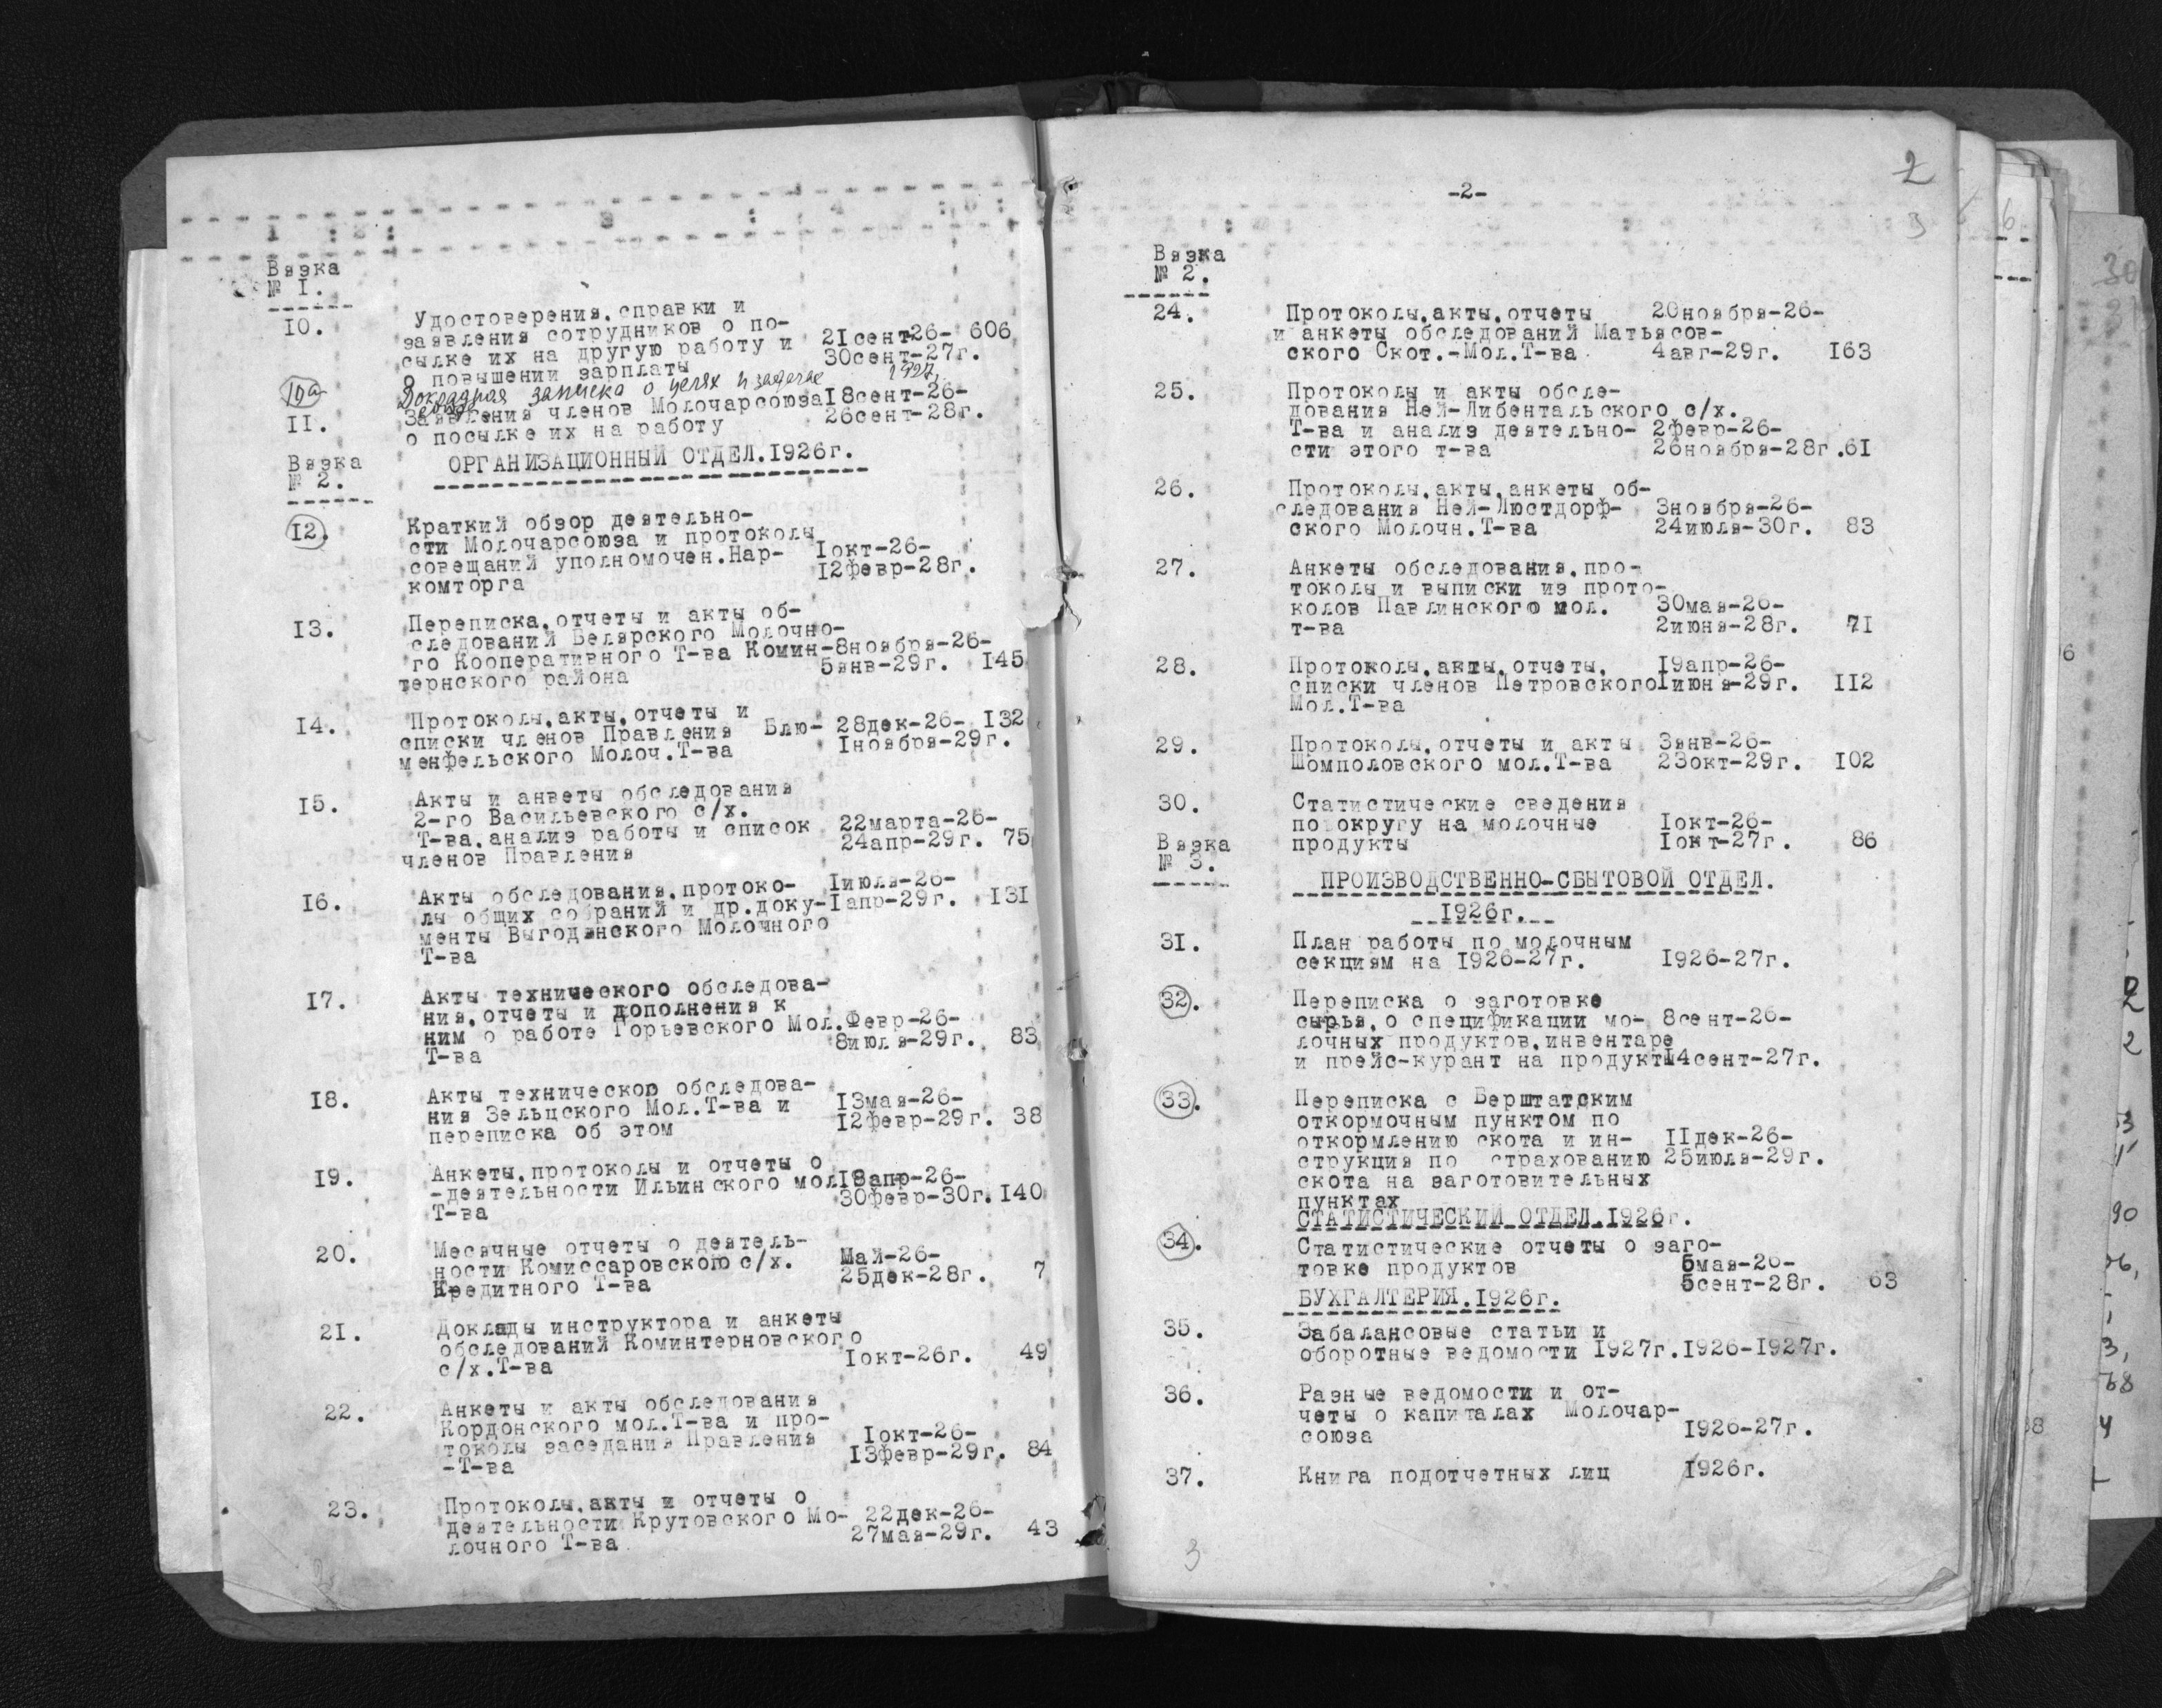 1 : 2 : 3 : 4 : 5 :
Вязка
№ I.
I0. Удостоверения.справки и
заявления сотрудников о по-
сылке их на другую работу и 2Iсент-26- 606
о повышении зарплаты 30сент-27г.
10а Докладная записка о целях и задачах 1927,
II. Заявления членов Молочарсоюза I8сент-26-
о посылке их на работу 26сент-28г.
Вязка ОРГАНИЗАЦИОННЫЙ ОТДЕЛ.I926г.
№ 2.
I2. Краткий обзор деятельно-
сти Молочарсоюза и протоколы
совещаний уполномочен.Нар- Iокт-26-
комторга I2февр-28г.
I3. Переписка.отчеты и акты об-
следований Белярского Молочно-
го Кооперативного Т-ва Комин-8ноября-26-
тернского района 5янв-29г. I45
I4. Протоколы.акты.отчеты и
списки членов Правления Блю- 28дек-26- I32
менфельского Молоч.Т-ва Iноября-29г.
I5. Акты и анветы обследования
2-го Васильевского с/х.
Т-ва.анализ работы и список 22марта-26-
членов Правления 24апр-29г. 75
I6. Акты обследования.протоко- Iиюля-26-
лы общих собраний и др.доку-Iапр-29г. I3I
менты Выгодянского Молочного
Т-ва
I7. Акты технического обследова-
ния.отчеты и дополнения к
ним о работе Горьевского Мол.Февр-26-
Т-ва 8июля-29г. 83
I8. Акты техническоо обследова-
ния Зельцского Мол.Т-ва и I3мая-26-
переписка об этом I2февр-29г. 38
I9. Анкеты.протоколы и отчеты о
-деятельности Ильинского мол.I8апр-26-
Т-ва 30февр-30г. I40
20. Месячные отчеты о деятель-
ности Комиссаровского с/х. Май-26-
Кредитного Т-ва 25дек-28г. 7
2I. Доклады инструктора и анкеты
обследований Коминтерновского
с/х.Т-ва Iокт-26г. 49
22. Анкеты и акты обследования
Кордонского мол.Т-ва и про-
токолы заседания Правления Iокт-26-
-Т-ва I3февр-29г. 84
23. Протоколы.акты и отчеты о
деятельности Крутовского Мо- 22дек-26-
лочного Т-ва 27мая-29г. 43
2
-2-
3
Вязка
№ 2.
24. Протоколы.акты.отчеты 20ноября-26-
и анкеты обследований Матьясов-
ского Скот.-Мол.Т-ва 4авг-29г. I63
25. Протоколы и акты обсле-
дования Ней-Либентальского с/х.
Т-ва и анализ деятельно- 2февр-26-
сти этого т-ва 26ноября-28г.6I
26. Протоколы.акты.анкеты об-
следования Ней-Люстдорф- 3ноября-26-
ского Молочн.Т-ва 24июля-30г. 83
27. Анкеты обследования.про-
токолы и выписки из прото-
колов Павлинского мол. 30мая-26-
т-ва 2июня-28г. 7I
28. Протоколы.акты.отчеты. I9апр-26-
списки членов Петровского Iиюня-29г. II2
Мол.Т-ва
29. Протоколы.отчеты и акты 3янв-26-
Шомполовского мол.Т-ва 23окт-29г. I02
30. Статистические сведения
по округу на молочные Iокт-26-
Вязка продукты Iокт-27г. 86
№ 3.
ПРОИЗВОДСТВЕННО-СБЫТОВОЙ ОТДЕЛ.
I926г.
3I. План работы по молочным
секциям на I926-27г. I926-27г.
32. Переписка о заготовке
сырья.о спецификации мо- 8сент-26-
лочных продуктов.инвентаре
и прейс-курант на продукты I4сент-27г.
33. Переписка с Верштатским
откормочным пунктом по
откормлению скота и ин- IIдек-26-
струкция по страхованию 25июля-29г.
скота на заготовительных
пунктах
СТАТИСТИЧЕСКИЙ ОТДЕЛ.I926г.
34. Статистические отчеты о заго-
товке продуктов 5мая-26-
5сент-28г. 63
БУХГАЛТЕРИЯ.I926г.
35. Забалансовые статьи и
оборотные ведомости I927г.I926-I927г.
36. Разные ведомости и от-
четы о капиталах Молочар-
союза I926-27г.
37. Книга подотчетных лиц I926г.
3